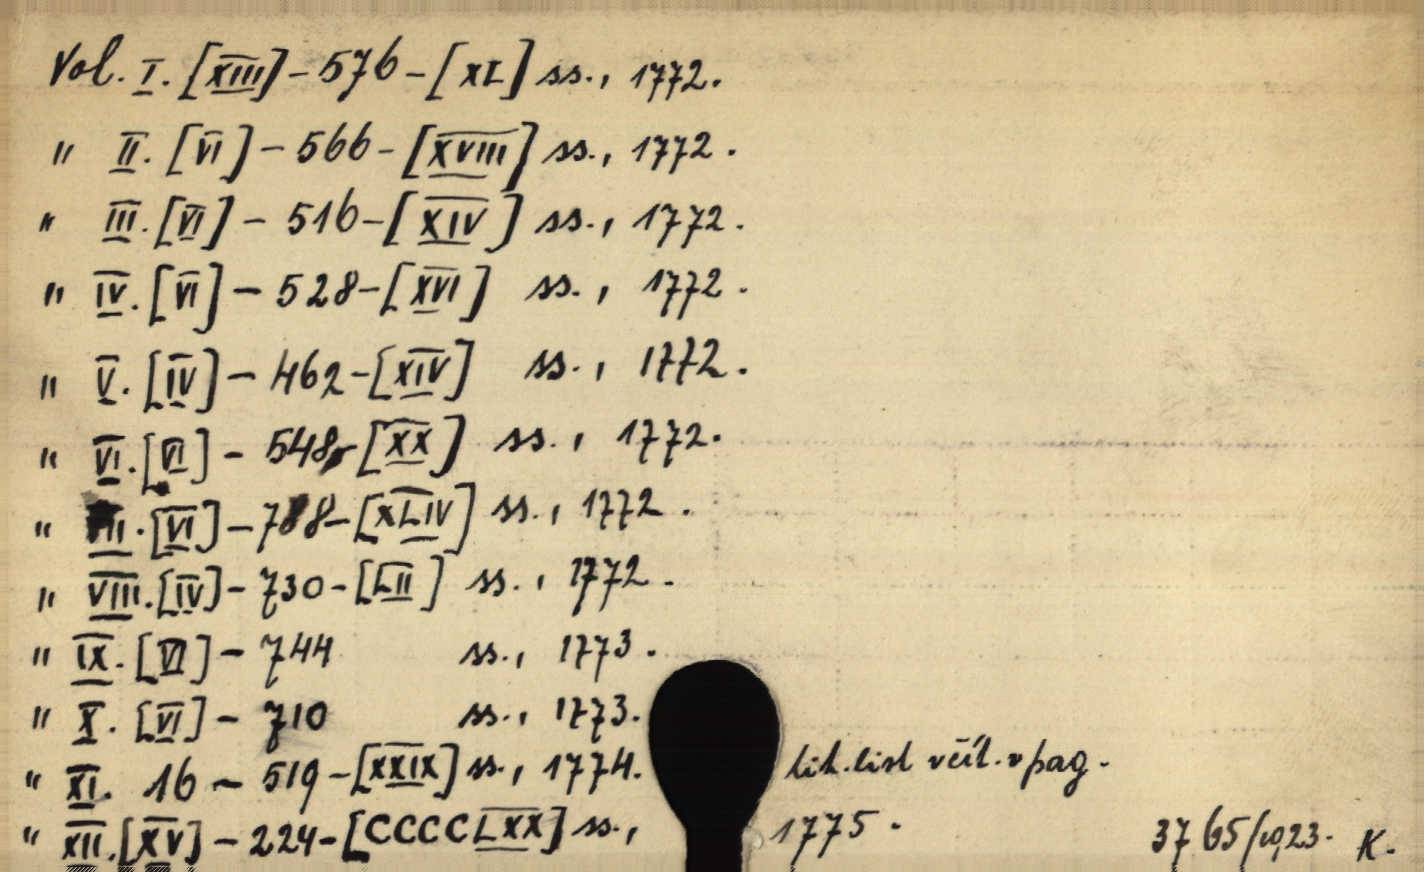 Vol. I. [XIII] – 576 – [XL] ss., 1772.
" II. [VI] – 566 – [XVIII] ss., 1772.
" III. [VI] – 516 – [XIV] ss., 1772.
" IV. [VI] – 528 – [XVI] ss., 1772.
" V. [IV] – 462 – [XIV] ss., 1772.
" VI. [VI] – 548 – [XX] ss., 1772.
" VII. [VI] – 788 – [XLIV] ss., 1772.
" VIII. [IV] – 730 – [LII] ss., 1772.
" IX. [VI] – 744 ss., 1773.
" X. [VI] – 710 ss., 1773.
" XI. 16 – 519 – [XXIX] ss., 1774. tit. list včít. v pag.
" XII. [XV] – 224 – [CCCCLXX] ss., 1775. 3765/1923. K.